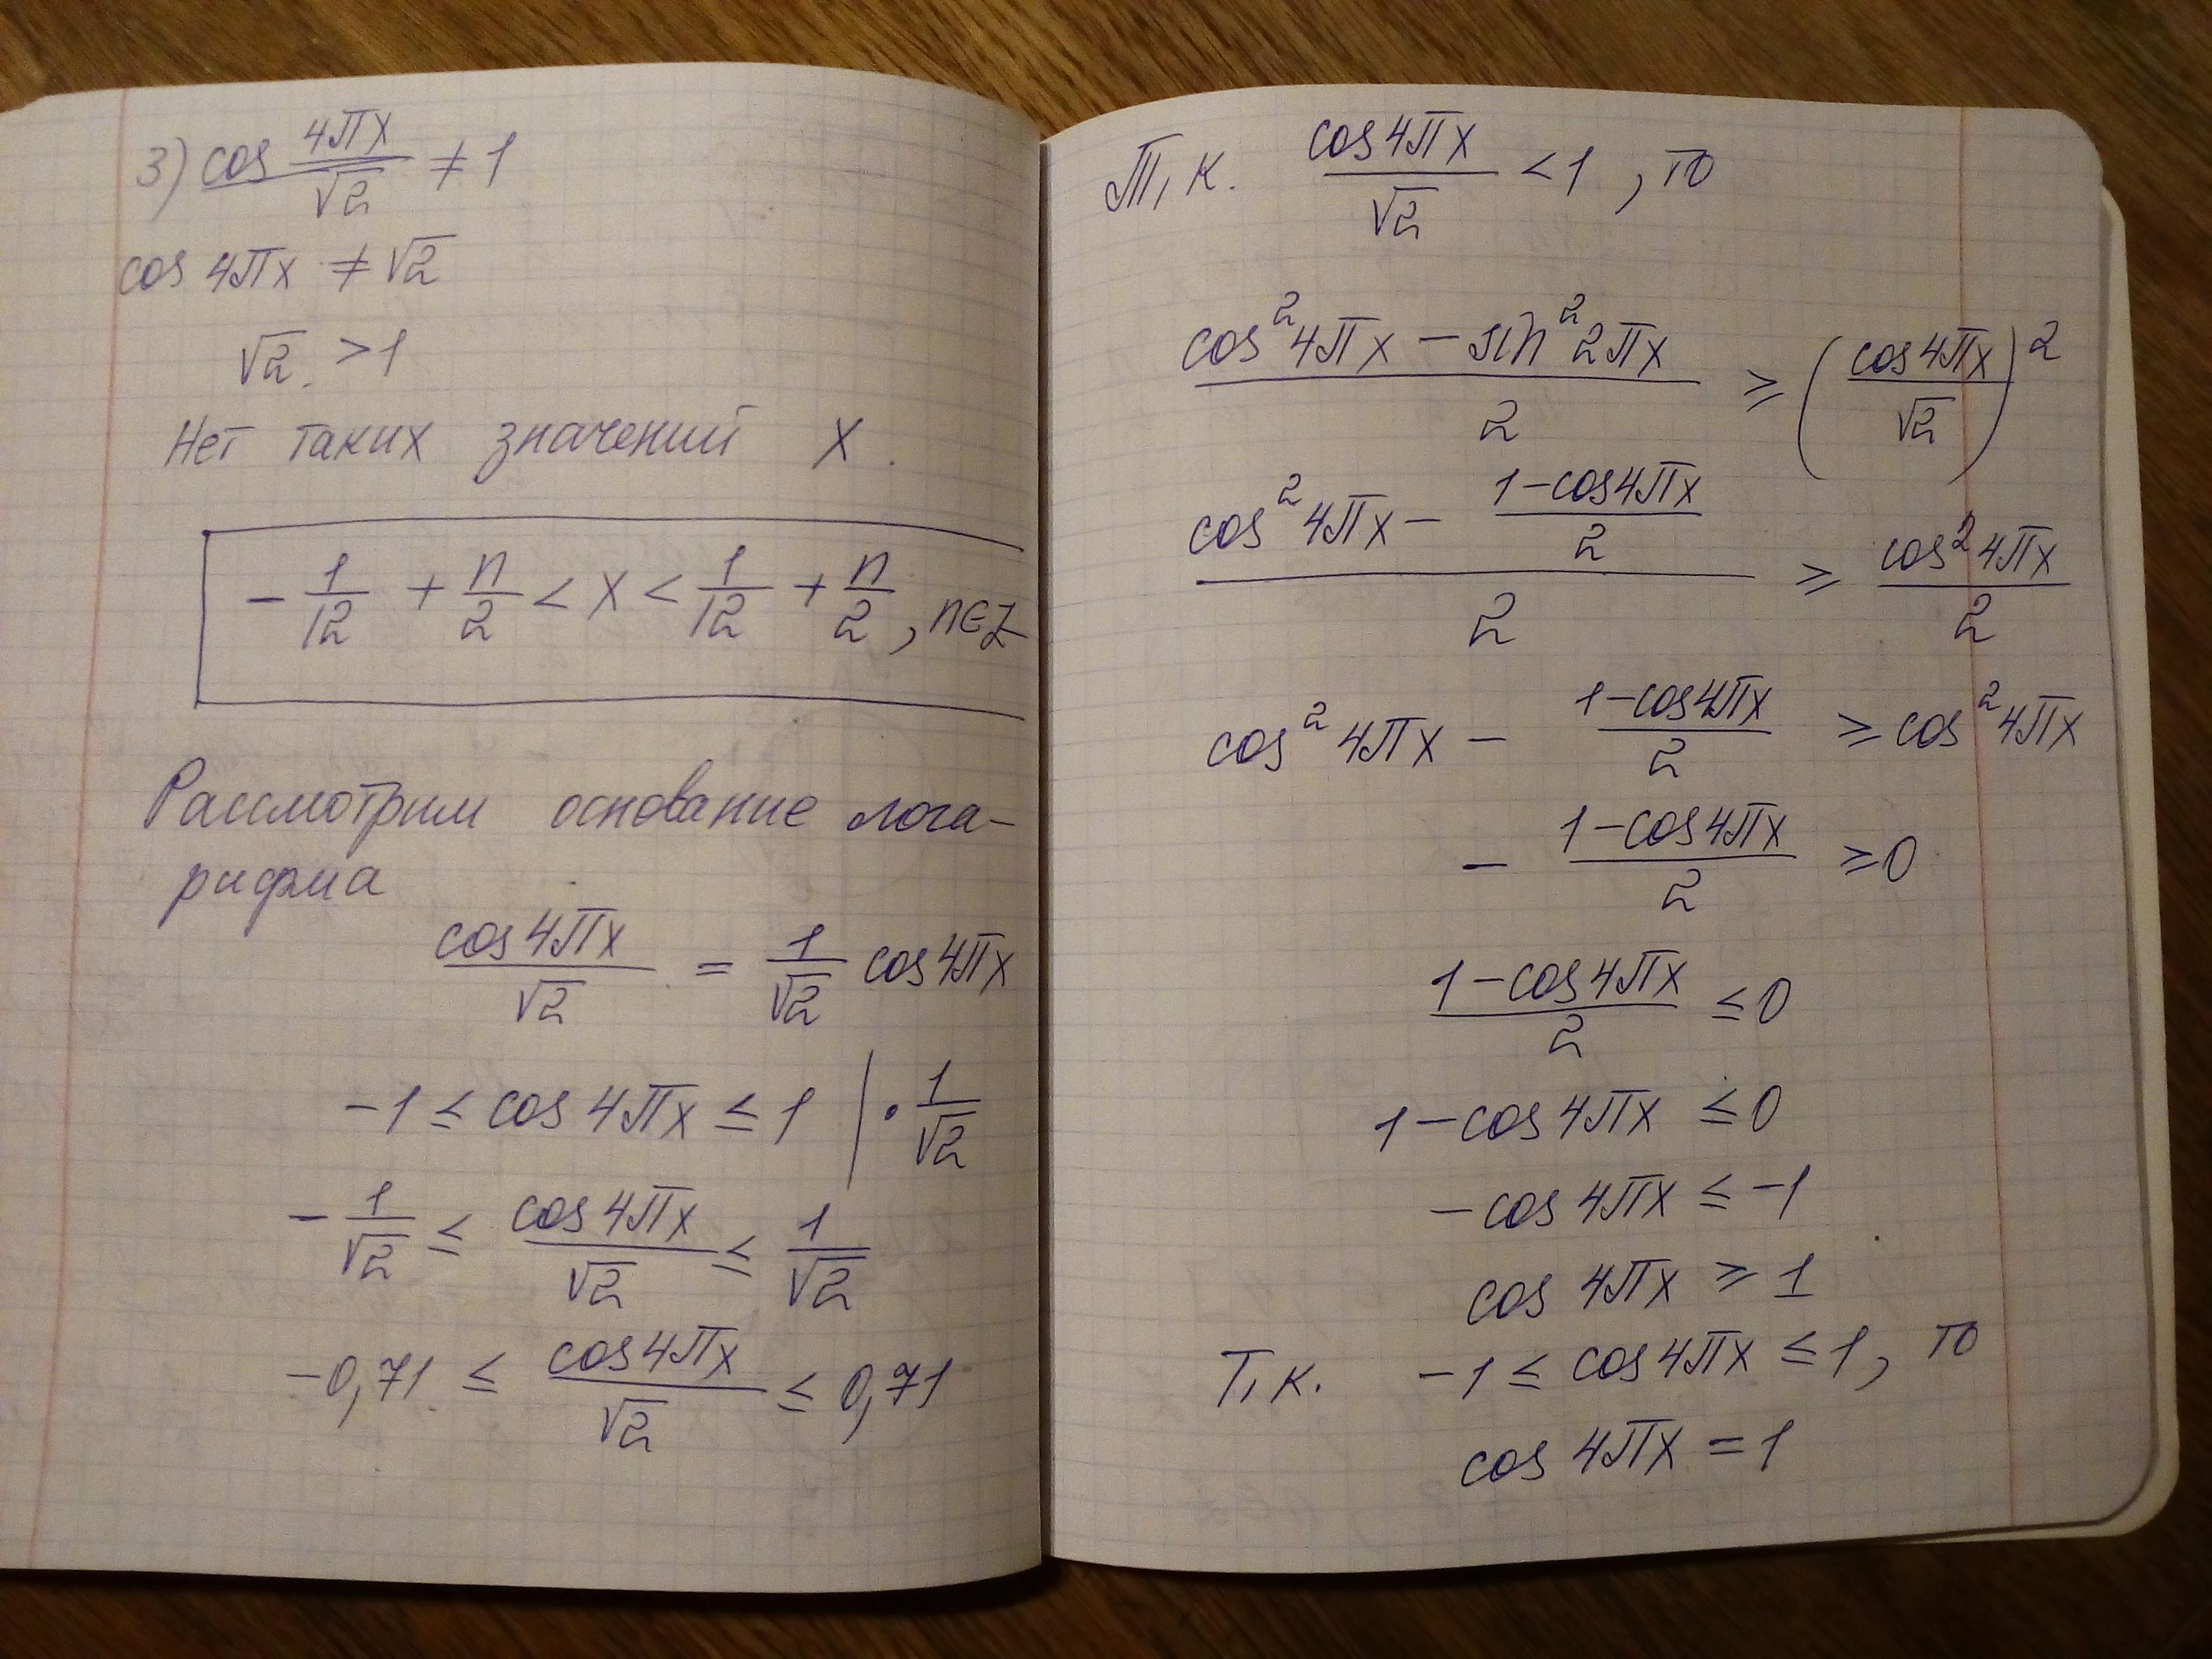 3) cos 4πx/√2 ≠ 1
cos 4πx ≠ √2
√2 > 1
Нет таких значений x.
-1/12 + n/2 < x < 1/12 + n/2, n∈Z
Рассмотрим основание лога-
рифма
cos4πx/√2 = 1/√2 cos4πx
-1 ≤ cos 4πx ≤ 1 | · 1/√2
-1/√2 ≤ cos4πx/√2 ≤ 1/√2
-0,71 ≤ cos4πx/√2 ≤ 0,71
Т.к. cos4πx/√2 < 1, то
(cos²4πx - sin²2πx)/2 ≥ (cos4πx/√2)²
(cos²4πx - (1-cos4πx)/2)/2 ≥ cos²4πx/2
cos²4πx - (1-cos4πx)/2 ≥ cos²4πx
-(1-cos4πx)/2 ≥ 0
(1-cos4πx)/2 ≤ 0
1-cos4πx ≤ 0
-cos4πx ≤ -1
cos 4πx ≥ 1
Т.к. -1 ≤ cos4πx ≤ 1, то
cos 4πx = 1